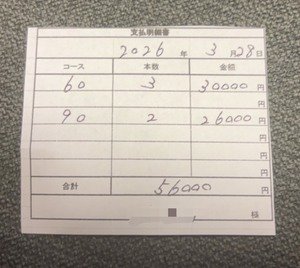 支払明細書
2026 年 3 月 28 日
コース 本数 金額
60 3 30000 円
円
90 2 26000 円
円
円
円
合計 56000 円
様